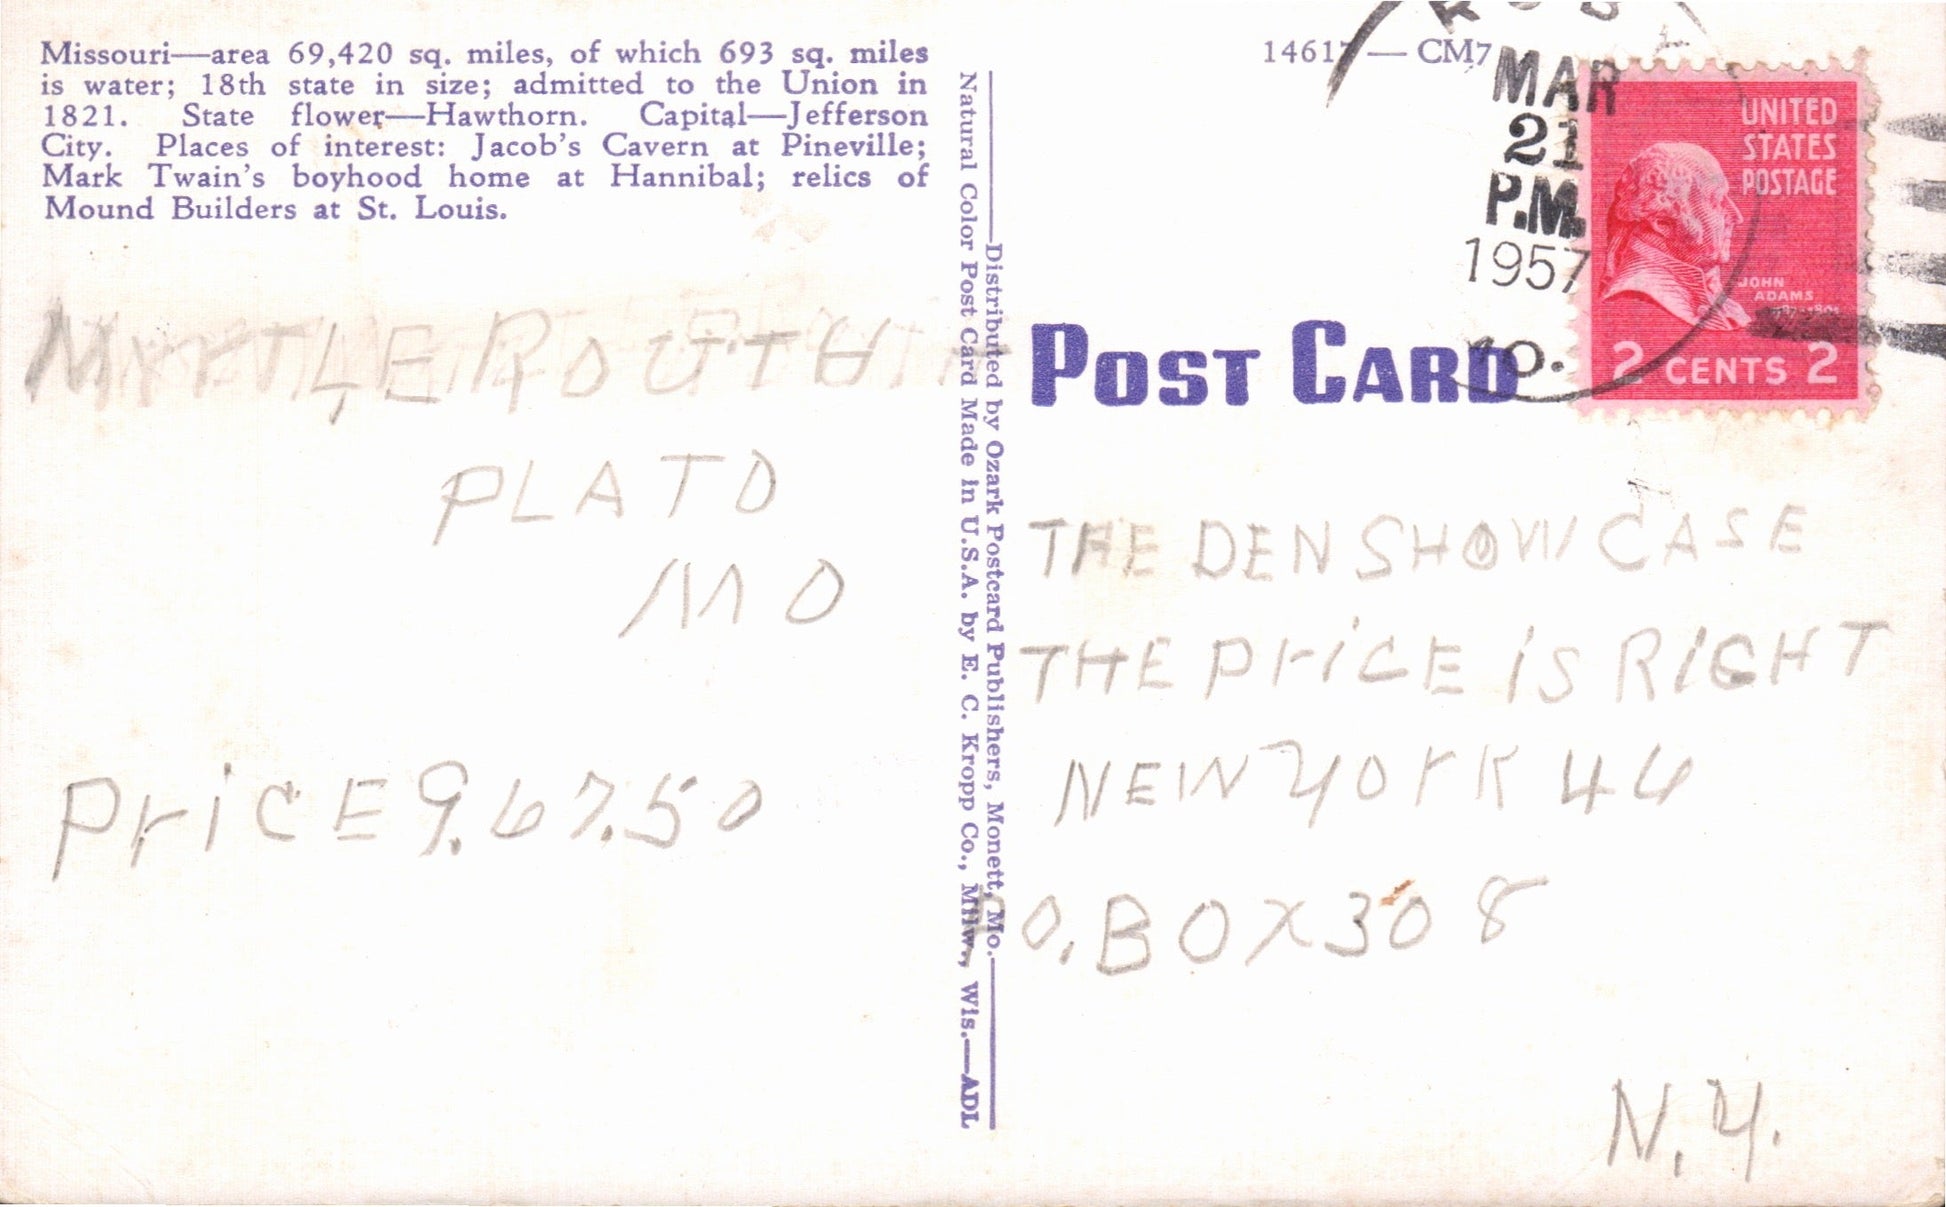 Missouri—area 69,420 sq. miles, of which 693 sq. miles
is water; 18th state in size; admitted to the Union in
1821. State flower—Hawthorn. Capital—Jefferson
City. Places of interest: Jacob's Cavern at Pineville;
Mark Twain's boyhood home at Hannibal; relics of
Mound Builders at St. Louis.
MYRTLE ROUTH
PLATO
MO
PriCE 9.67.50
Distributed by Ozark Postcard Publishers, Monett, Mo.
Natural Color Post Card Made in U.S.A. by E. C. Kropp Co., Milw., Wis.—ADL
14617 — CM7
MAR
21
P.M.
1957
UNITED
STATES
POSTAGE
JOHN
ADAMS
2 CENTS 2
POST CARD
THE DEN SHOW CASE
THE PriCE iS RiGHT
NEW YOrK 46
P.O. BOX 308
N.Y.